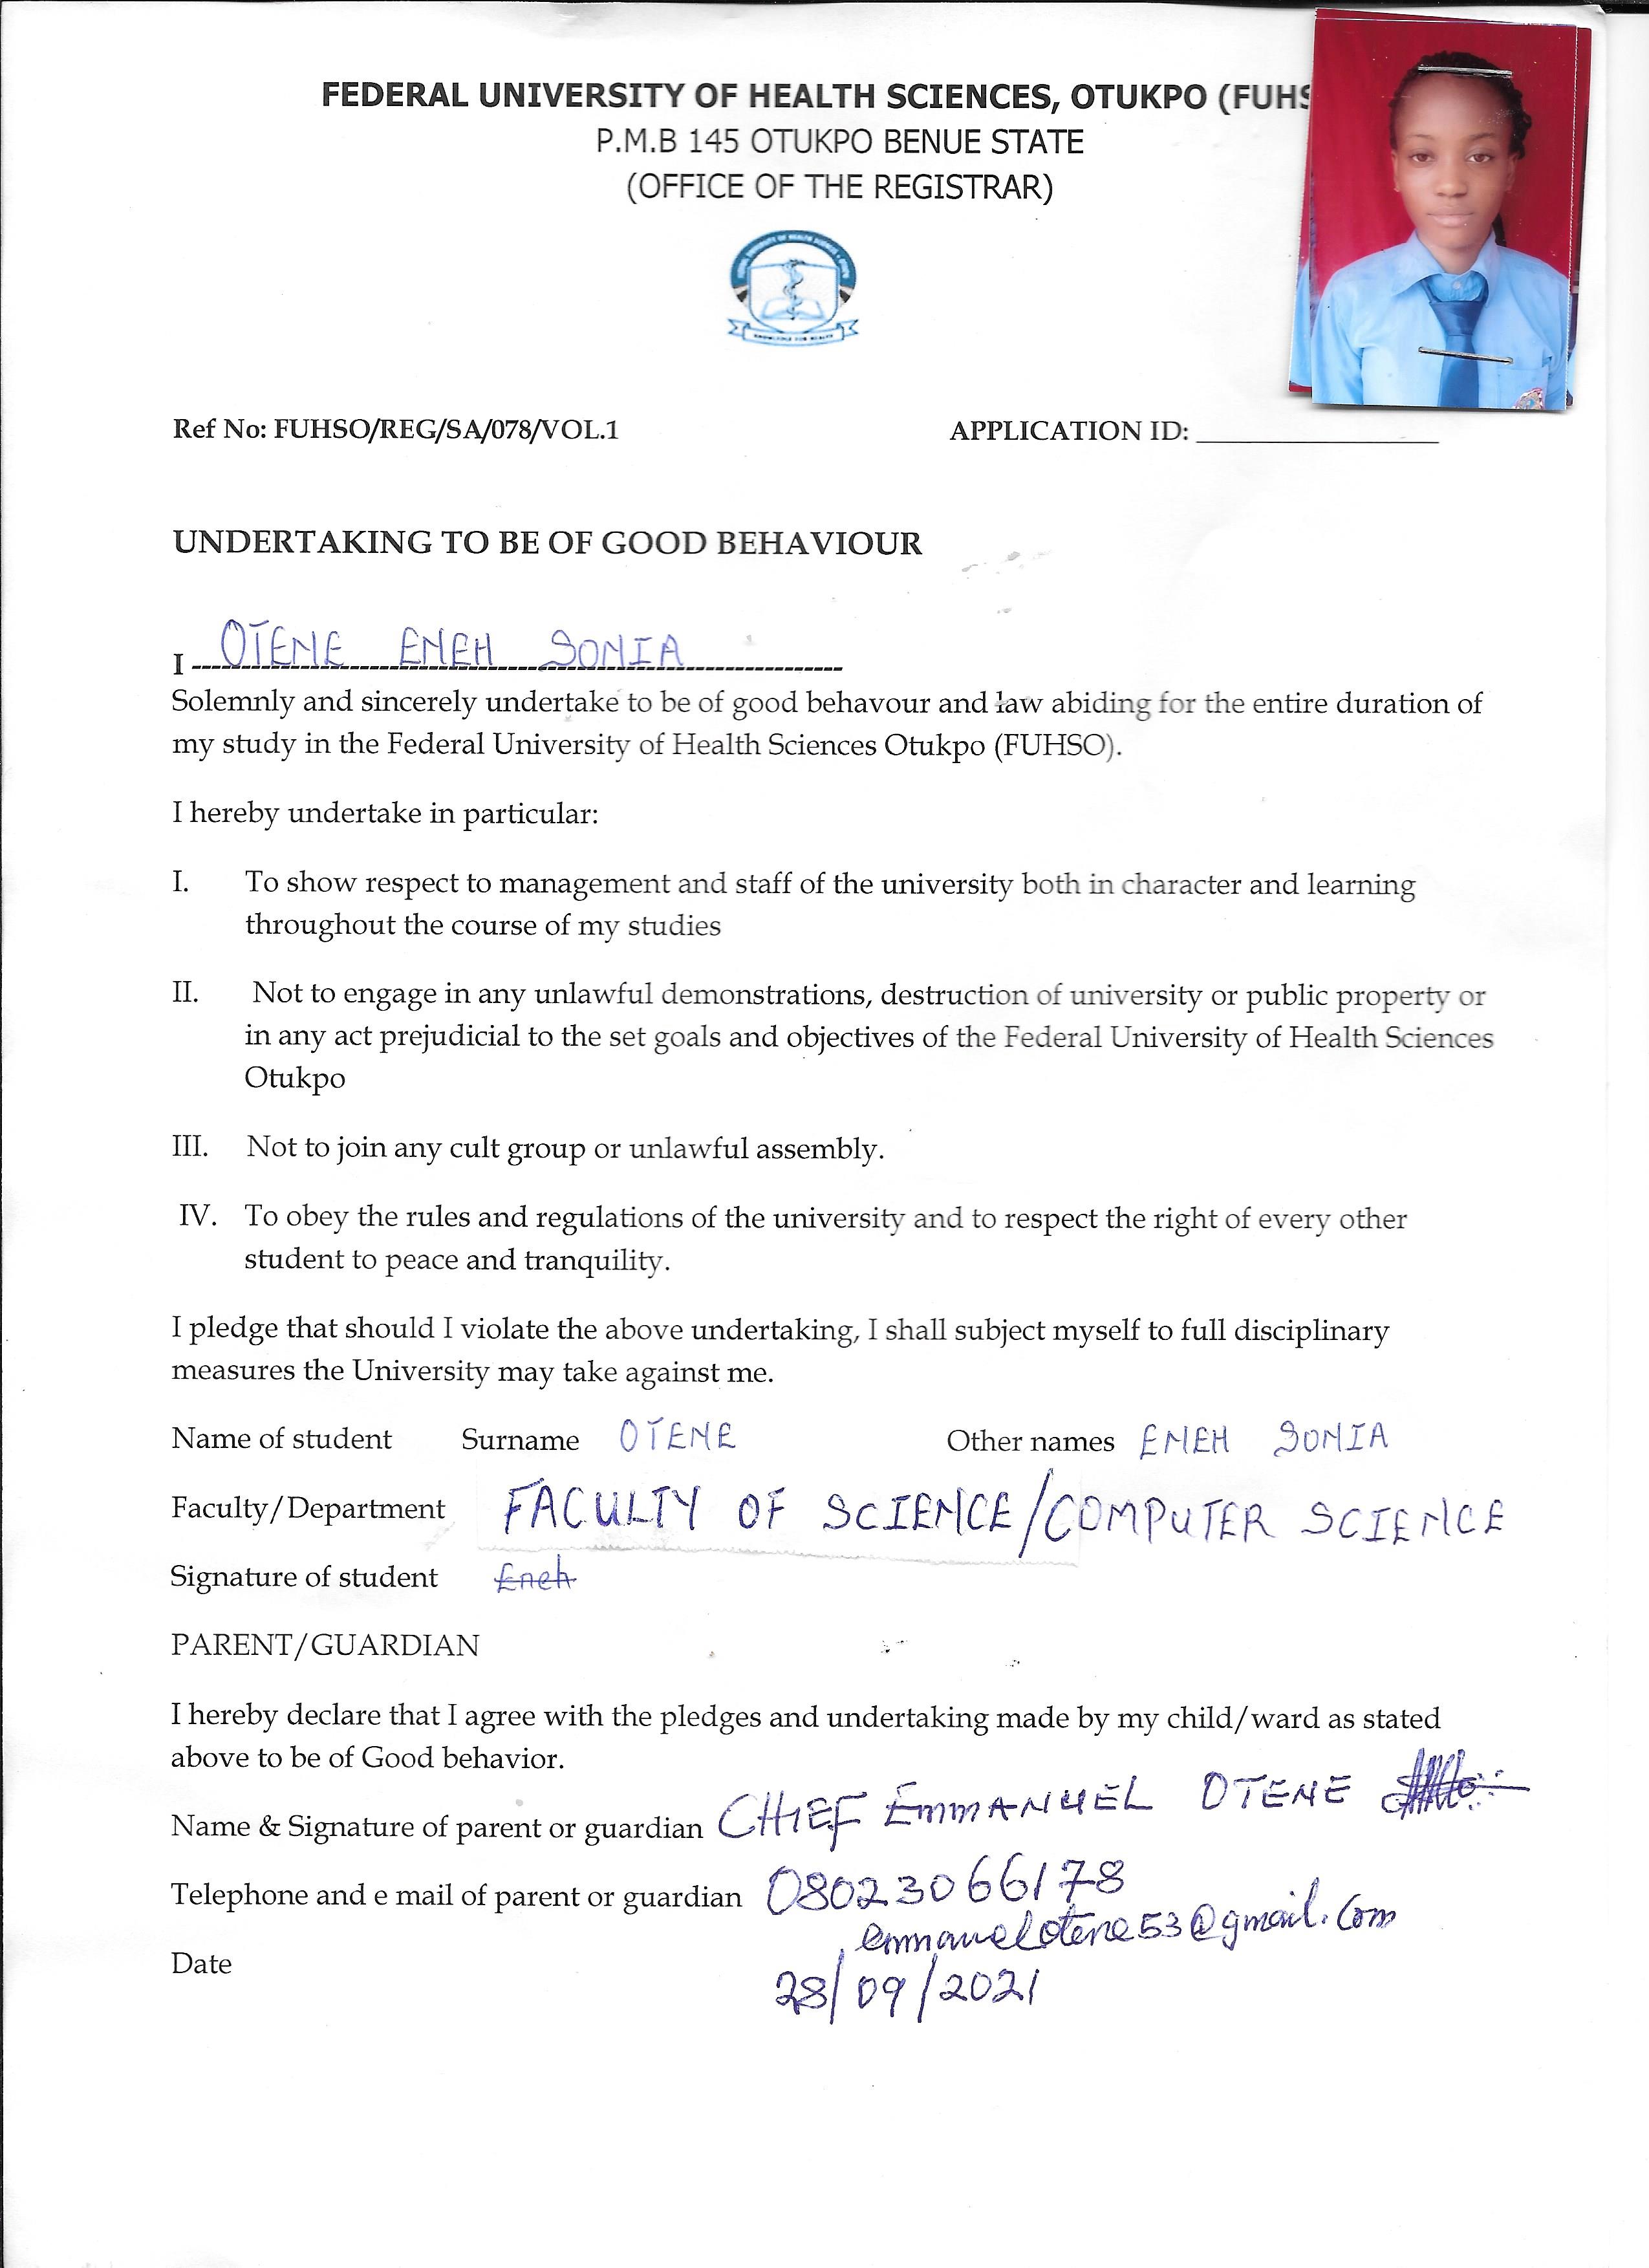 FEDERAL UNIVERSITY OF HEALTH SCIENCES, OTUKPO (FUHS
P.M.B 145 OTUKPO BENUE STATE
(OFFICE OF THE REGISTRAR)
KNOWLEDGE FOR HEALTH
Ref No: FUHSO/REG/SA/078/VOL.1 APPLICATION ID: ____________
UNDERTAKING TO BE OF GOOD BEHAVIOUR
I OTENE ENEH SONIA
Solemnly and sincerely undertake to be of good behavour and law abiding for the entire duration of
my study in the Federal University of Health Sciences Otukpo (FUHSO).
I hereby undertake in particular:
I. To show respect to management and staff of the university both in character and learning
throughout the course of my studies
II. Not to engage in any unlawful demonstrations, destruction of university or public property or
in any act prejudicial to the set goals and objectives of the Federal University of Health Sciences
Otukpo
III. Not to join any cult group or unlawful assembly.
IV. To obey the rules and regulations of the university and to respect the right of every other
student to peace and tranquility.
I pledge that should I violate the above undertaking, I shall subject myself to full disciplinary
measures the University may take against me.
Name of student Surname OTENE Other names ENEH SONIA
Faculty/Department FACULTY OF SCIENCE/COMPUTER SCIENCE
Signature of student Eneh
PARENT/GUARDIAN
I hereby declare that I agree with the pledges and undertaking made by my child/ward as stated
above to be of Good behavior.
Name & Signature of parent or guardian CHIEF EmmANUEL OTENE
Telephone and e mail of parent or guardian 08023066178
emmanuelotene53@gmail.com
Date 28/09/2021